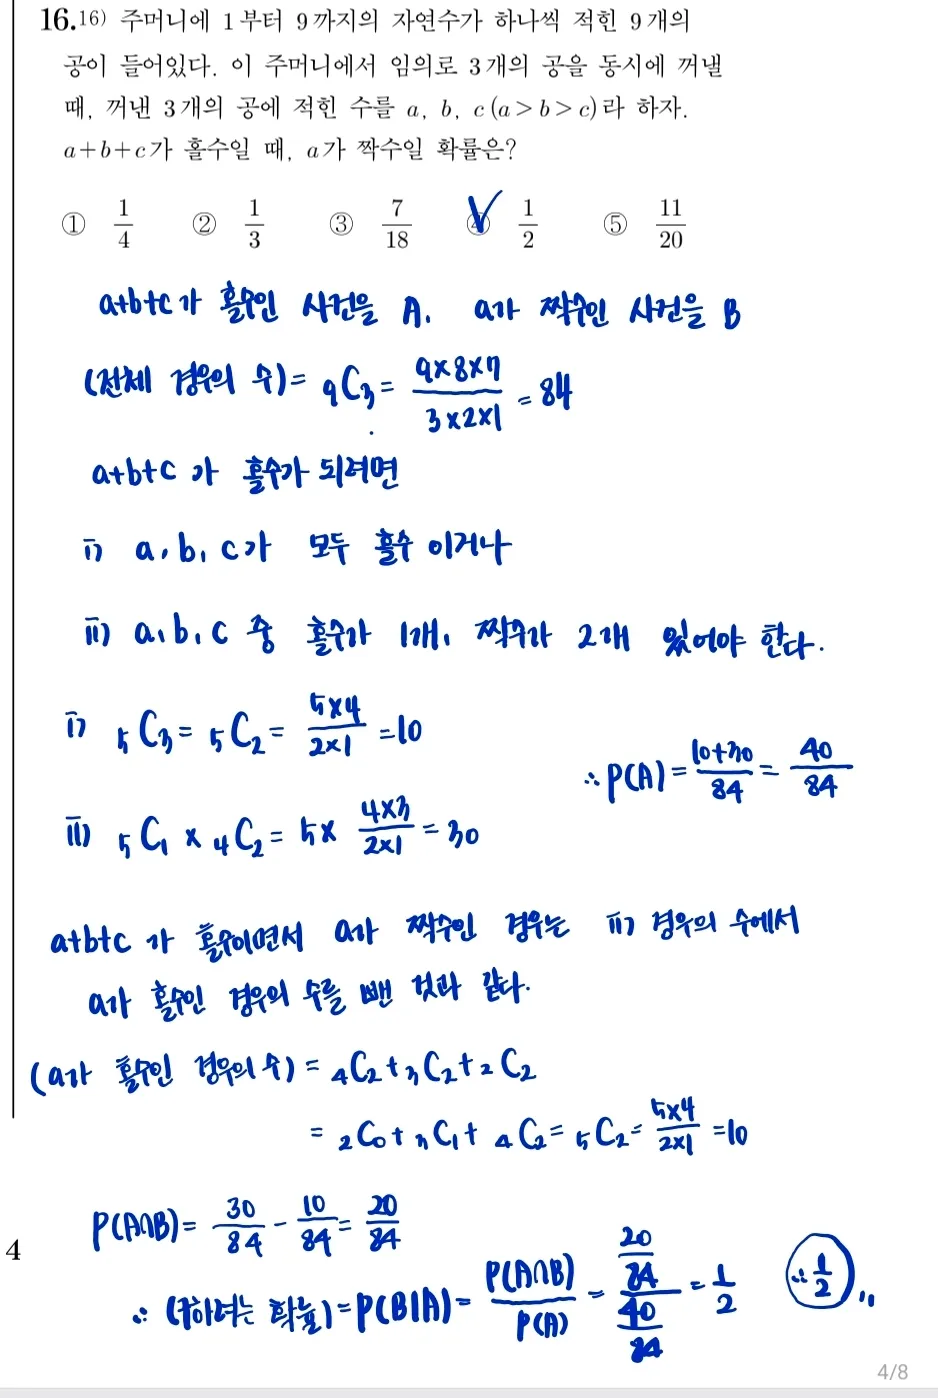 16.16) 주머니에 1부터 9까지의 자연수가 하나씩 적힌 9개의
공이 들어있다. 이 주머니에서 임의로 3개의 공을 동시에 꺼낼
때, 꺼낸 3개의 공에 적힌 수를 a, b, c(a>b>c)라 하자.
a+b+c가 홀수일 때, a가 짝수일 확률은?
① 1/4 ② 1/3 ③ 7/18 ④ 1/2 ⑤ 11/20
a+b+c가 홀수인 사건을 A, a가 짝수인 사건을 B
(전체 경우의 수)= ₉C₃ = (9×8×7)/(3×2×1) = 84
a+b+c가 홀수가 되려면
i) a, b, c가 모두 홀수이거나
ii) a, b, c 중 홀수가 1개, 짝수가 2개 있어야 한다.
i) ₅C₃ = ₅C₂ = (5×4)/(2×1) = 10
∴ P(A) = (10+30)/84 = 40/84
ii) ₅C₁ × ₄C₂ = 5× (4×3)/(2×1) = 30
a+b+c가 홀수이면서 a가 짝수인 경우는 ii) 경우의 수에서
a가 홀수인 경우의 수를 뺀 것과 같다.
(a가 홀수인 경우의 수) = ₄C₂+₃C₂+₂C₂
= ₂C₀+₃C₁+₄C₂ = ₅C₂ = (5×4)/(2×1) = 10
P(A∩B) = 30/84 - 10/84 = 20/84
∴ (구하려는 확률) = P(B|A) = P(A∩B)/P(A) = (20/84)/(40/84) = 1/2 ∴ 1/2 ,,
4
4/8